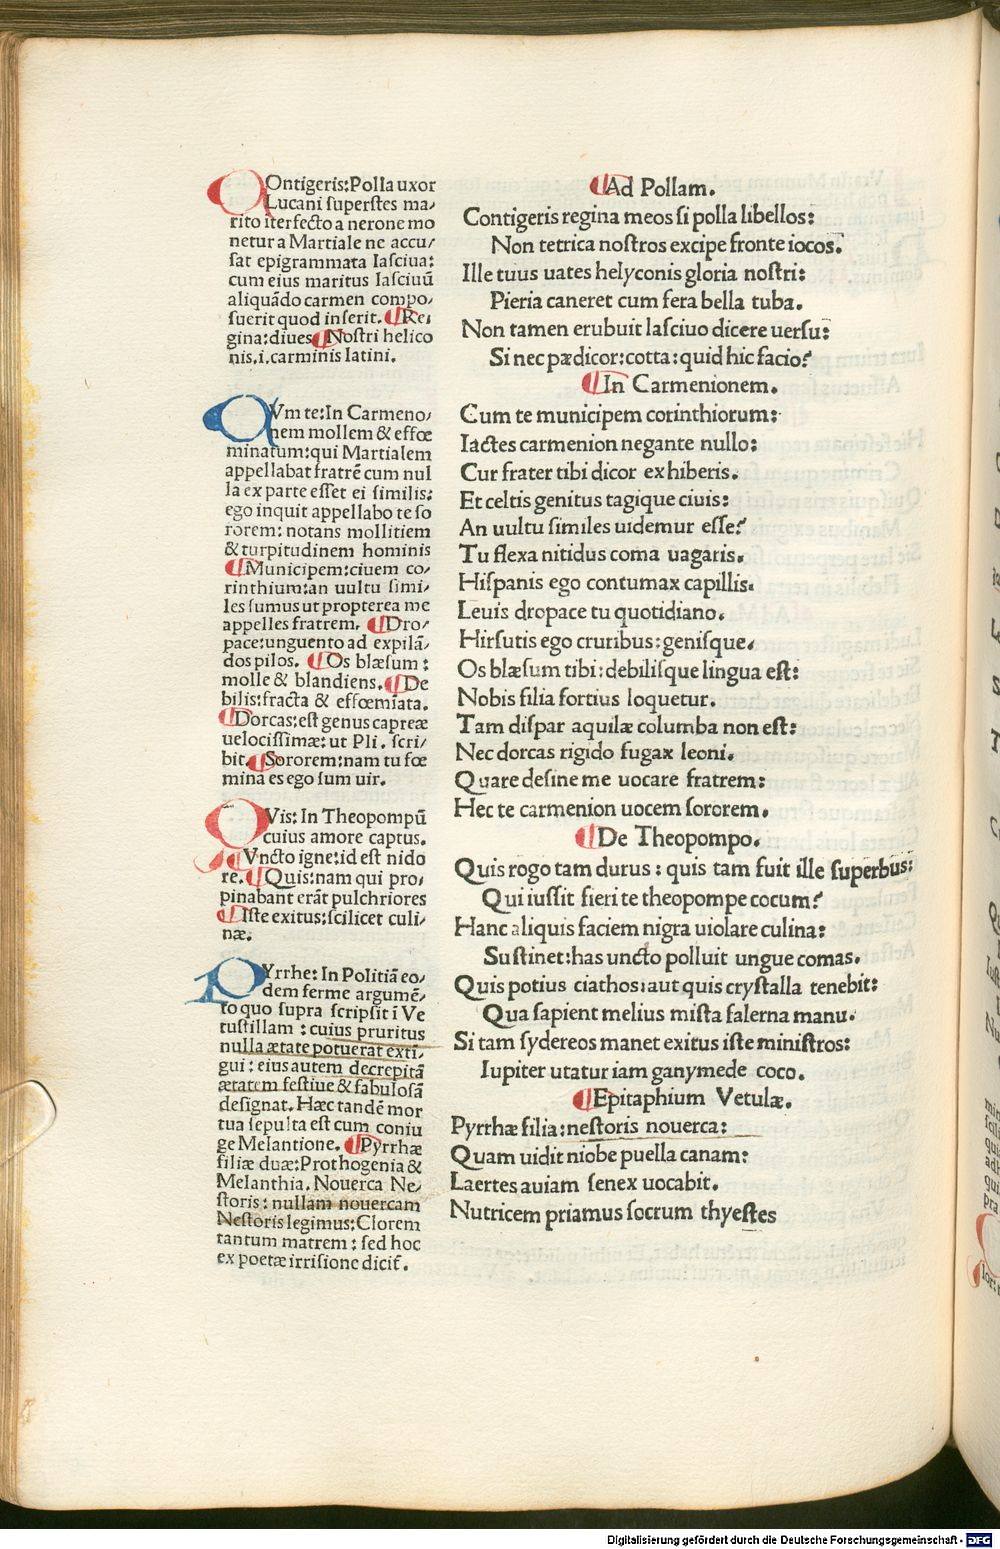 COntigeris:Polla uxor
Lucani ſuperſtes ma/
rito īterfecto a nerone mo
netur a Martiale ne accu/
ſat epigrammata laſciua:
cum eius maritus laſciuū
aliquādo carmen compo/
ſuerit quod inſerit. ¶Re/
gina:diues ¶Noſtri helico
nis.i.carminis latini.
CVm te:In Carmeno/
nem mollem & effœ
minatum:qui Martialem
appellabat fratrē cum nul
la ex parte eſſet ei ſimilis:
ego inquit appellabo te ſo
rorem: notans mollitiem
& turpitudinem hominis
¶Municipem:ciuem co/
rinthium:an uultu ſimi/
les ſumus ut propterea me
appelles fratrem. ¶Dro/
pace:unguento ad expilā/
dos pilos. ¶Os blæſum:
molle & blandiens. ¶De
bilis:fracta & effœmīata.
¶Dorcas:eſt genus capreæ
uelociſſimæ: ut Pli. ſcri/
bit. ¶Sororem:nam tu fœ
mina es ego ſum uir.
QVis: In Theopompū
cuius amore captus.
¶Vncto igne:id eſt nido
re. ¶Quis:nam qui pro/
pinabant erāt pulchriores
¶Iſte exitus:ſcilicet culi/
næ.
PYrrhe: In Politiā eo/
dem ferme argumē/
to quo ſupra ſcripſit ī Ve
tuſtillam : cuius pruritus
nulla ætate potuerat exti/
gui : eius autem decrepitā
ætatem feſtiue & fabuloſā
deſignat. Hæc tandē mor
tua ſepulta eſt cum coniu
ge Melantione. ¶Pyrrhæ
filiæ duæ:Prothogenia &
Melanthia. Nouerca Ne/
ſtoris : nullam nouercam
Neſtoris legimus:Clorem
tantum matrem : ſed hoc
ex poetæ irriſione dicit̄.
¶Ad Pollam.
Contigeris regina meos ſi polla libellos:
Non tetrica noſtros excipe fronte iocos.
Ille tuus uates helyconis gloria noſtri:
Pieria caneret cum fera bella tuba.
Non tamen erubuit laſciuo dicere uerſu:
Si nec pædicor:cotta:quid hic facio?
¶In Carmenionem.
Cum te municipem corinthiorum:
Iactes carmenion negante nullo:
Cur frater tibi dicor ex hiberis.
Et celtis genitus tagique ciuis:
An uultu ſimiles uidemur eſſe?
Tu flexa nitidus coma uagaris.
Hiſpanis ego contumax capillis.
Leuis dropace tu quotidiano.
Hirſutis ego cruribus:geniſque.
Os blæſum tibi:debiliſque lingua eſt:
Nobis filia fortius loquetur.
Tam diſpar aquilæ columba non eſt:
Nec dorcas rigido fugax leoni.
Quare deſine me uocare fratrem:
Hec te carmenion uocem ſororem.
¶De Theopompo.
Quis rogo tam durus : quis tam fuit ille ſuperbus:
Qui iuſſit fieri te theopompe cocum?
Hanc aliquis faciem nigra uiolare culina:
Suſtinet:has uncto polluit ungue comas.
Quis potius ciathos:aut quis cryſtalla tenebit:
Qua ſapient melius miſta falerna manu.
Si tam ſydereos manet exitus iſte miniſtros:
Iupiter utatur iam ganymede coco.
¶Epitaphium Vetulæ.
Pyrrhæ filia:neſtoris nouerca:
Quam uidit niobe puella canam:
Laertes auiam ſenex uocabit.
Nutricem priamus ſocrum thyeſtes
Digitalisierung gefördert durch die Deutsche Forschungsgemeinschaft - DFG